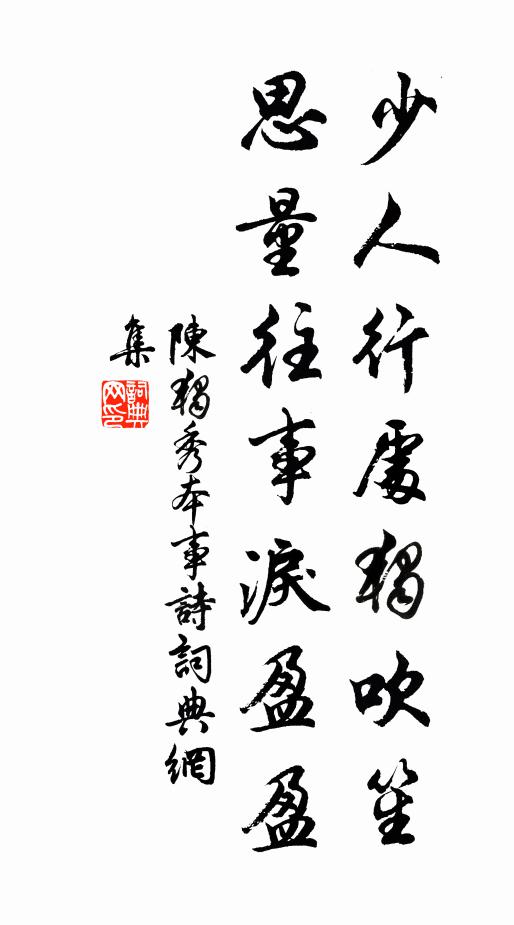 少人行處獨吹笙
思量往事淚盈盈
陳獨秀本事詩詞典網
集
詞典
网印